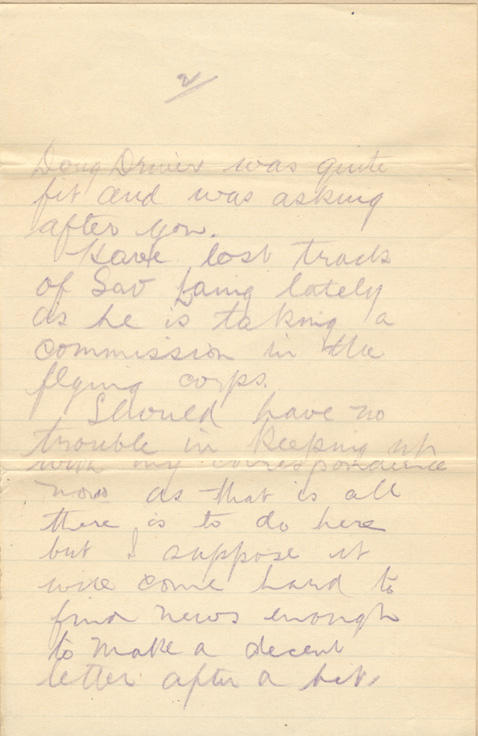 2/
Doug Driver was quite
fit and was asking
after you.
Have lost track
of Sav Laing lately
as he is taking a
commission in the
flying corps.
Should have no
trouble in keeping up
with my correspondence
now as that is all
there is to do here
but I suppose it
will come hard to
find news enough
to make a decent
letter after a bit.